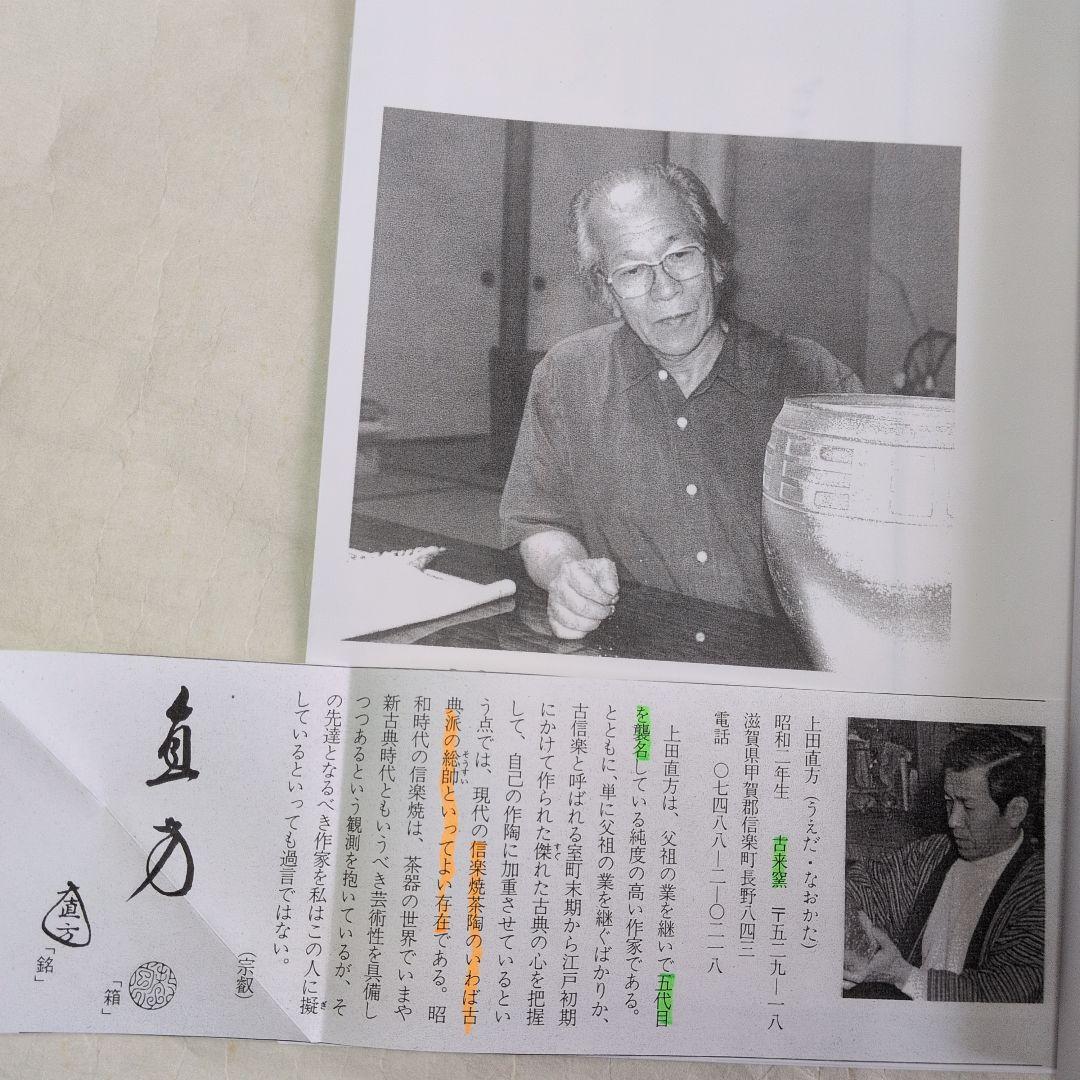 上田直方（うえだ・なおかた）
昭和二年生　古来窯　〒五二九―一八
滋賀県甲賀郡信楽町長野八四三
電話　〇七四八八―二―〇二一八
上田直方は、父祖の業を継いで五代目
を襲名している純度の高い作家である。
とともに、単に父祖の業を継ぐばかりか、
古信楽と呼ばれる室町末期から江戸初期
にかけて作られた傑れた古典の心を把握
すぐ
して、自己の作陶に加重させているとい
う点では、現代の信楽焼茶陶のいわば古
典派の総帥といってよい存在である。昭
そうすい
和時代の信楽焼は、茶器の世界でいまや
新古典時代ともいうべき芸術性を具備し
つつあるという観測を抱いているが、そ
の先達となるべき作家を私はこの人に擬
ぎ
しているといっても過言ではない。
（宗叡）
直方
直方
「銘」
「箱」